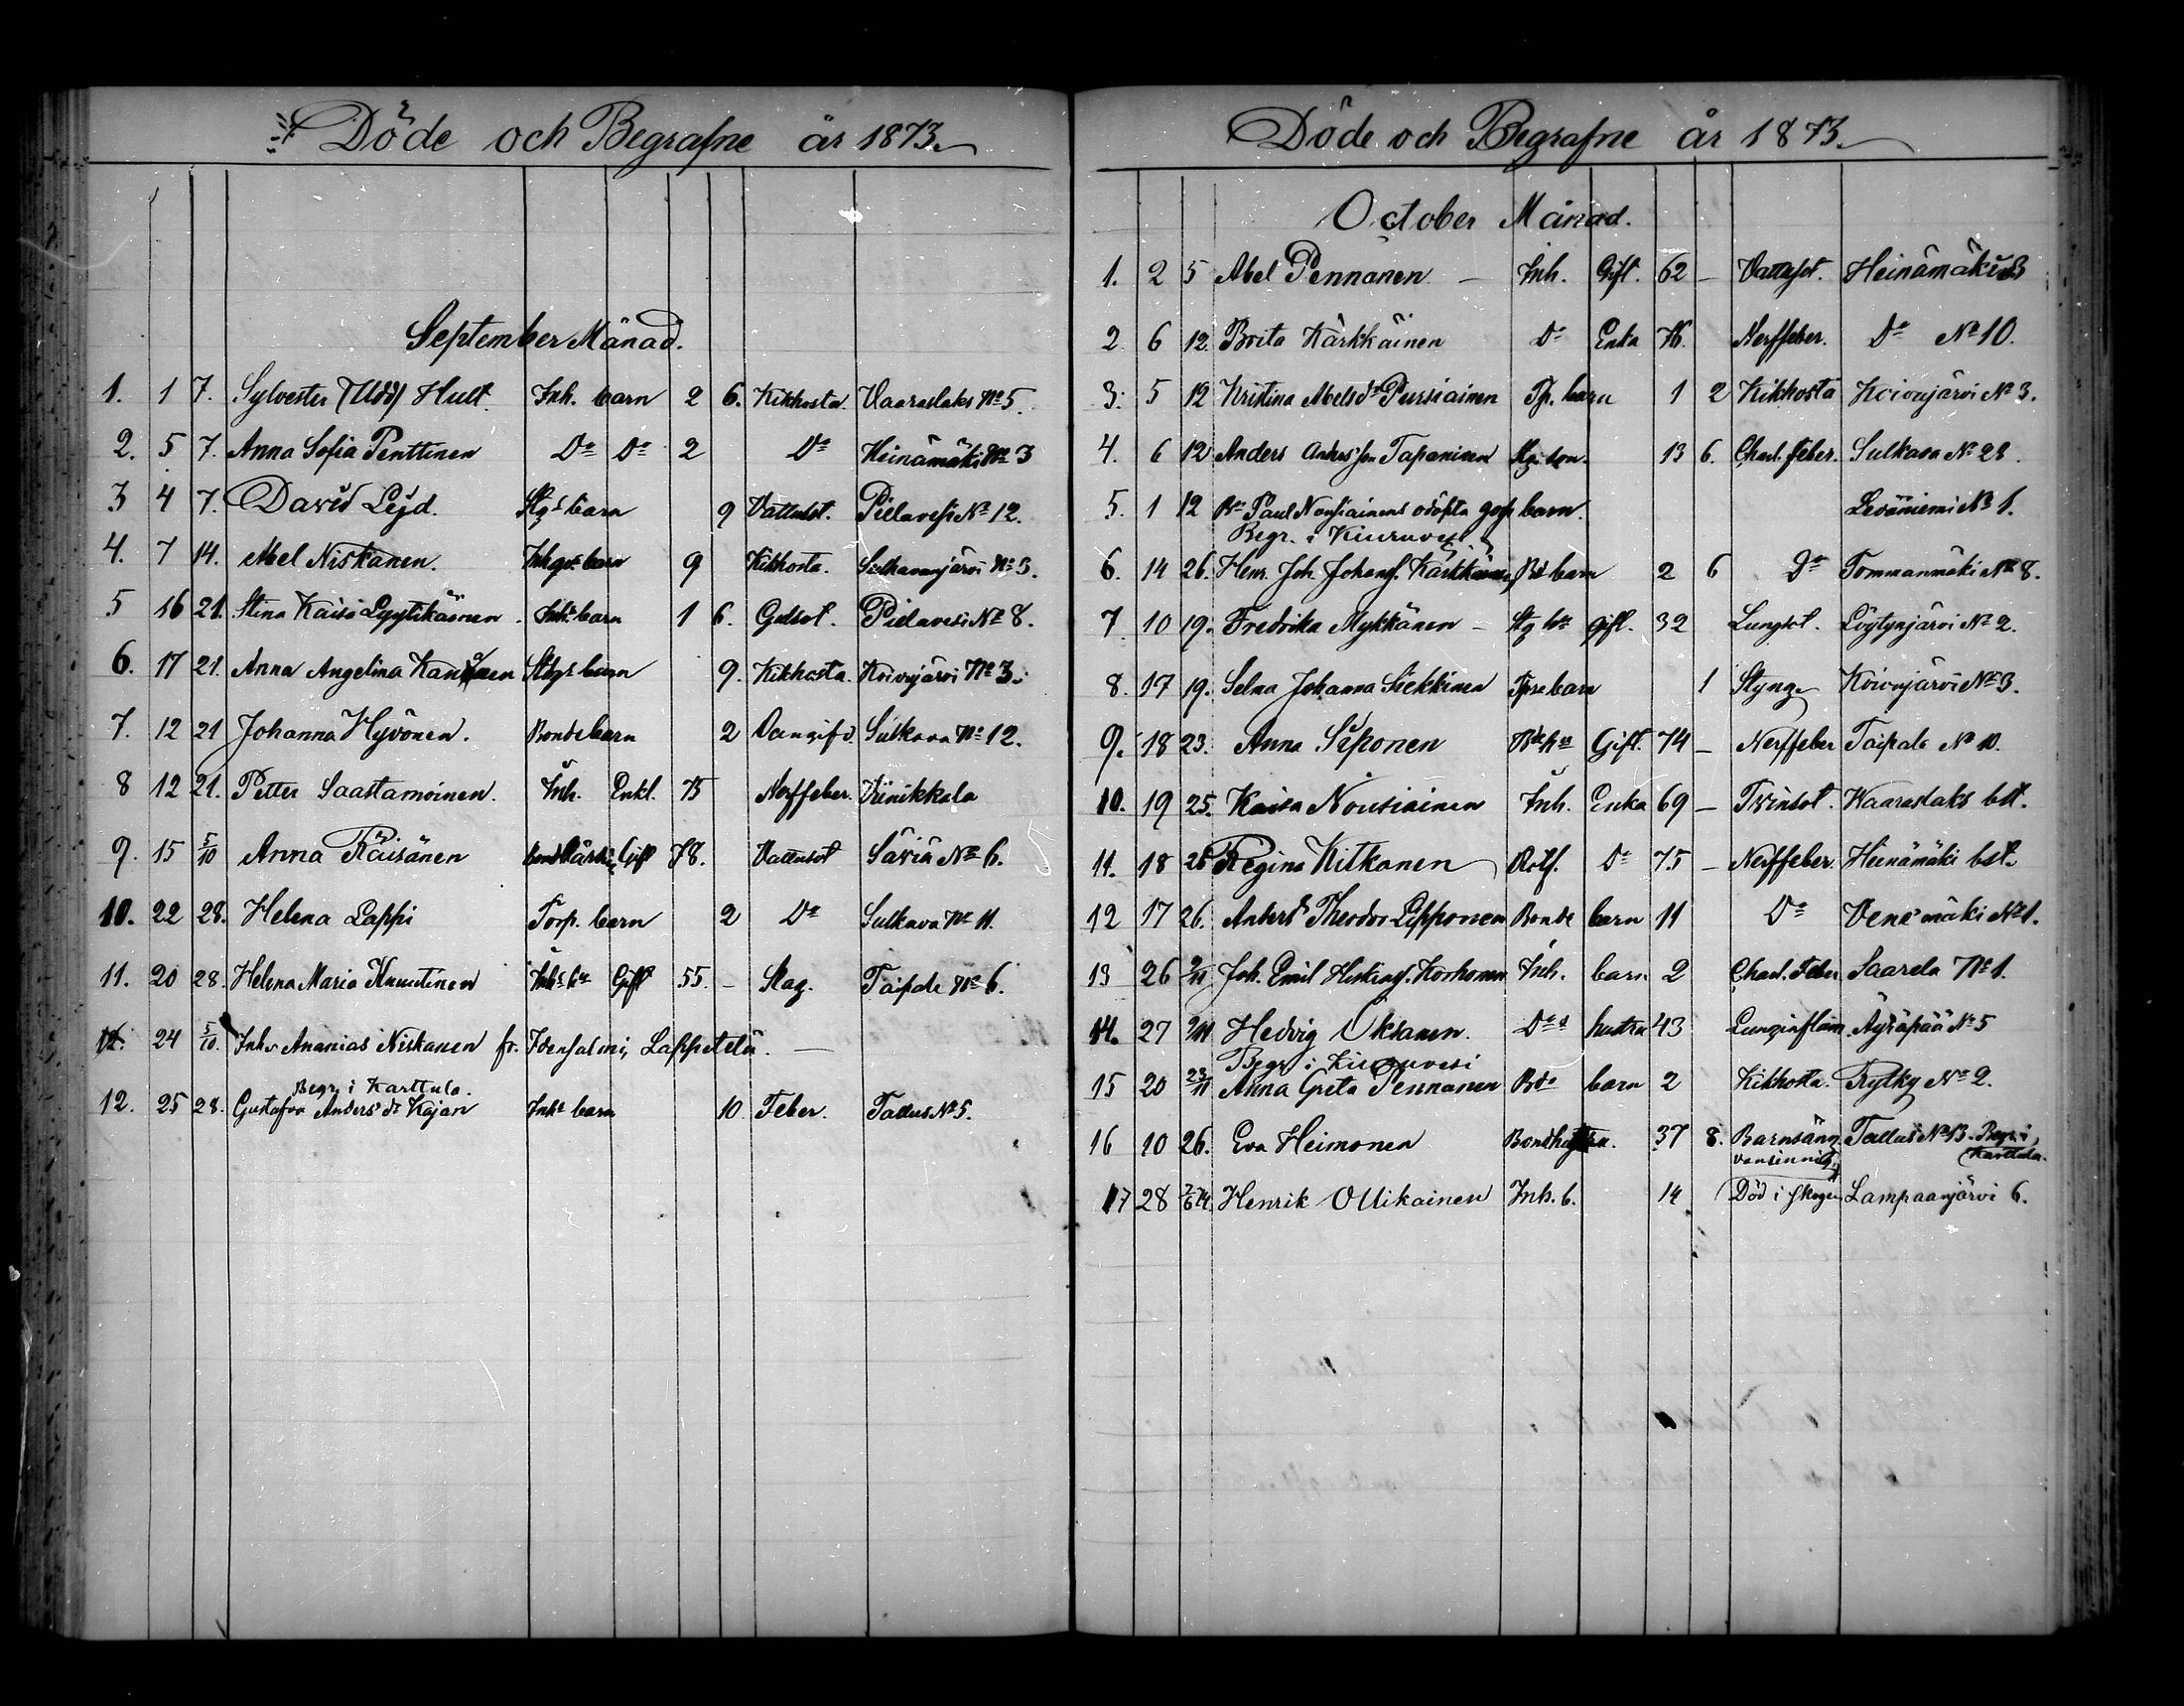 Döde och Begrafne år 1873.
September Månad.
1. 1 7. Sylvester (Udd) Hult. Inh. barn 2 6. Kikhosta. Vaaraslaks No 5.
2. 5 7. Anna Sofia Penttinen Do Do 2 Do Heinämäki No 3
3 4 7. David Lejd. barn 9 Vattusot. Pielavesi No 12.
4. 7 14. Abel Niskanen. barn 9 Kikhosta. Sulkavanjärvi No 3.
5 16 21. Stina Kaisa Lyytikäinen. Inhs barn 1 6. Gulsot. Pielavesi No 8.
6. 17 21. Anna Angelina barn 9. Kikhosta. Koivujärvi No 3.
7. 12 21 Johanna Hyvönen. Bonde barn 2 Sulkava No 12.
8 12 21. Petter Saastamoinen. Inh. Enkl. 75 Nerffeber. Viinikkala
9. 15 5/10 Anna Räisänen Gift 78. Vattusot Säviä No 6.
10. 22 28. Helena Lappi Torp. barn 2 Do Sulkava No 11.
11. 20 28. Helena Maria Knuutinen Gift 55. – Slag. Taipale No 6.
12. 24 5/10. Inh. Ananias Niskanen fr. Idensalmi, Lappetelä. –
Begr. i Karttula.
12. 25 28. Gustafva Anders dr Kajan Inhs barn 10 Feber. Tallus No 5.
Döde och Begrafne år 1873.
October Månad.
1. 2 5 Abel Pennanen – Inh. Gift. 62 – Vattusot. Heinämäki 3
2. 6 12. Brita Kärkkäinen Do Enka 76. Nerffeber. Do No 10.
3. 5 12 Kristina Abelsdr Pursiainen Tp. barn 1 2 Kikhosta Koivujärvi No 3.
4. 6 12 Anders Anderssson Tapaninen son. 13 6. Charl. feber. Sulkava No 28.
5. 1 12 Paul Nousiainens odöpta barn. Leväniemi No 1.
Begr. i Kiuruvesi
6. 14 26. Henr. Joh. Johanss. Kärkkäinen barn 2 6 Do Tommanmäki No 8.
7. 10 19. Fredrika Mykkänen – gift. 32 Lungsot. Löytynjärvi No 2.
8. 17 19. Selma Johanna Siekkinen barn 1 Styng Koivujärvi No 3.
9. 18 23. Anna Siponen Gift. 74 – Nerffeber Taipale No 10.
10. 19 25. Kaisa Nousiainen Inh. Enka 69 – Tvinsot. Waaraslaks bst.
11. 18 26 Regina Kitkanen Rotf. Do 75 – Nerffeber. Heinämäki bst.
12 17 26. Anders Theodor Lipponen Bonde barn 11 Do Venemäki No 1.
13 26 2/11 Joh. Emil Korhonen Inh. barn 2 Charl. Feber Saarela No 1.
14. 27 9/11 Hedvig Oksanen. Dos hustru 43 Lunginflam. Äyräpää No 5
Begr. i Kiuruvesi
15 20 23/11 Anna Greta Pennanen barn 2 Kikhosta. Rytky No 2.
16 10 26. Eva Heimonen Bondhustru. 37 8. Barnsäng. Tallus No 13. Begr. i
vansinnig. Karttula.
17 28 74. Henrik Ollikainen Inh. b. 14 Död i skogen Lampaanjärvi 6.